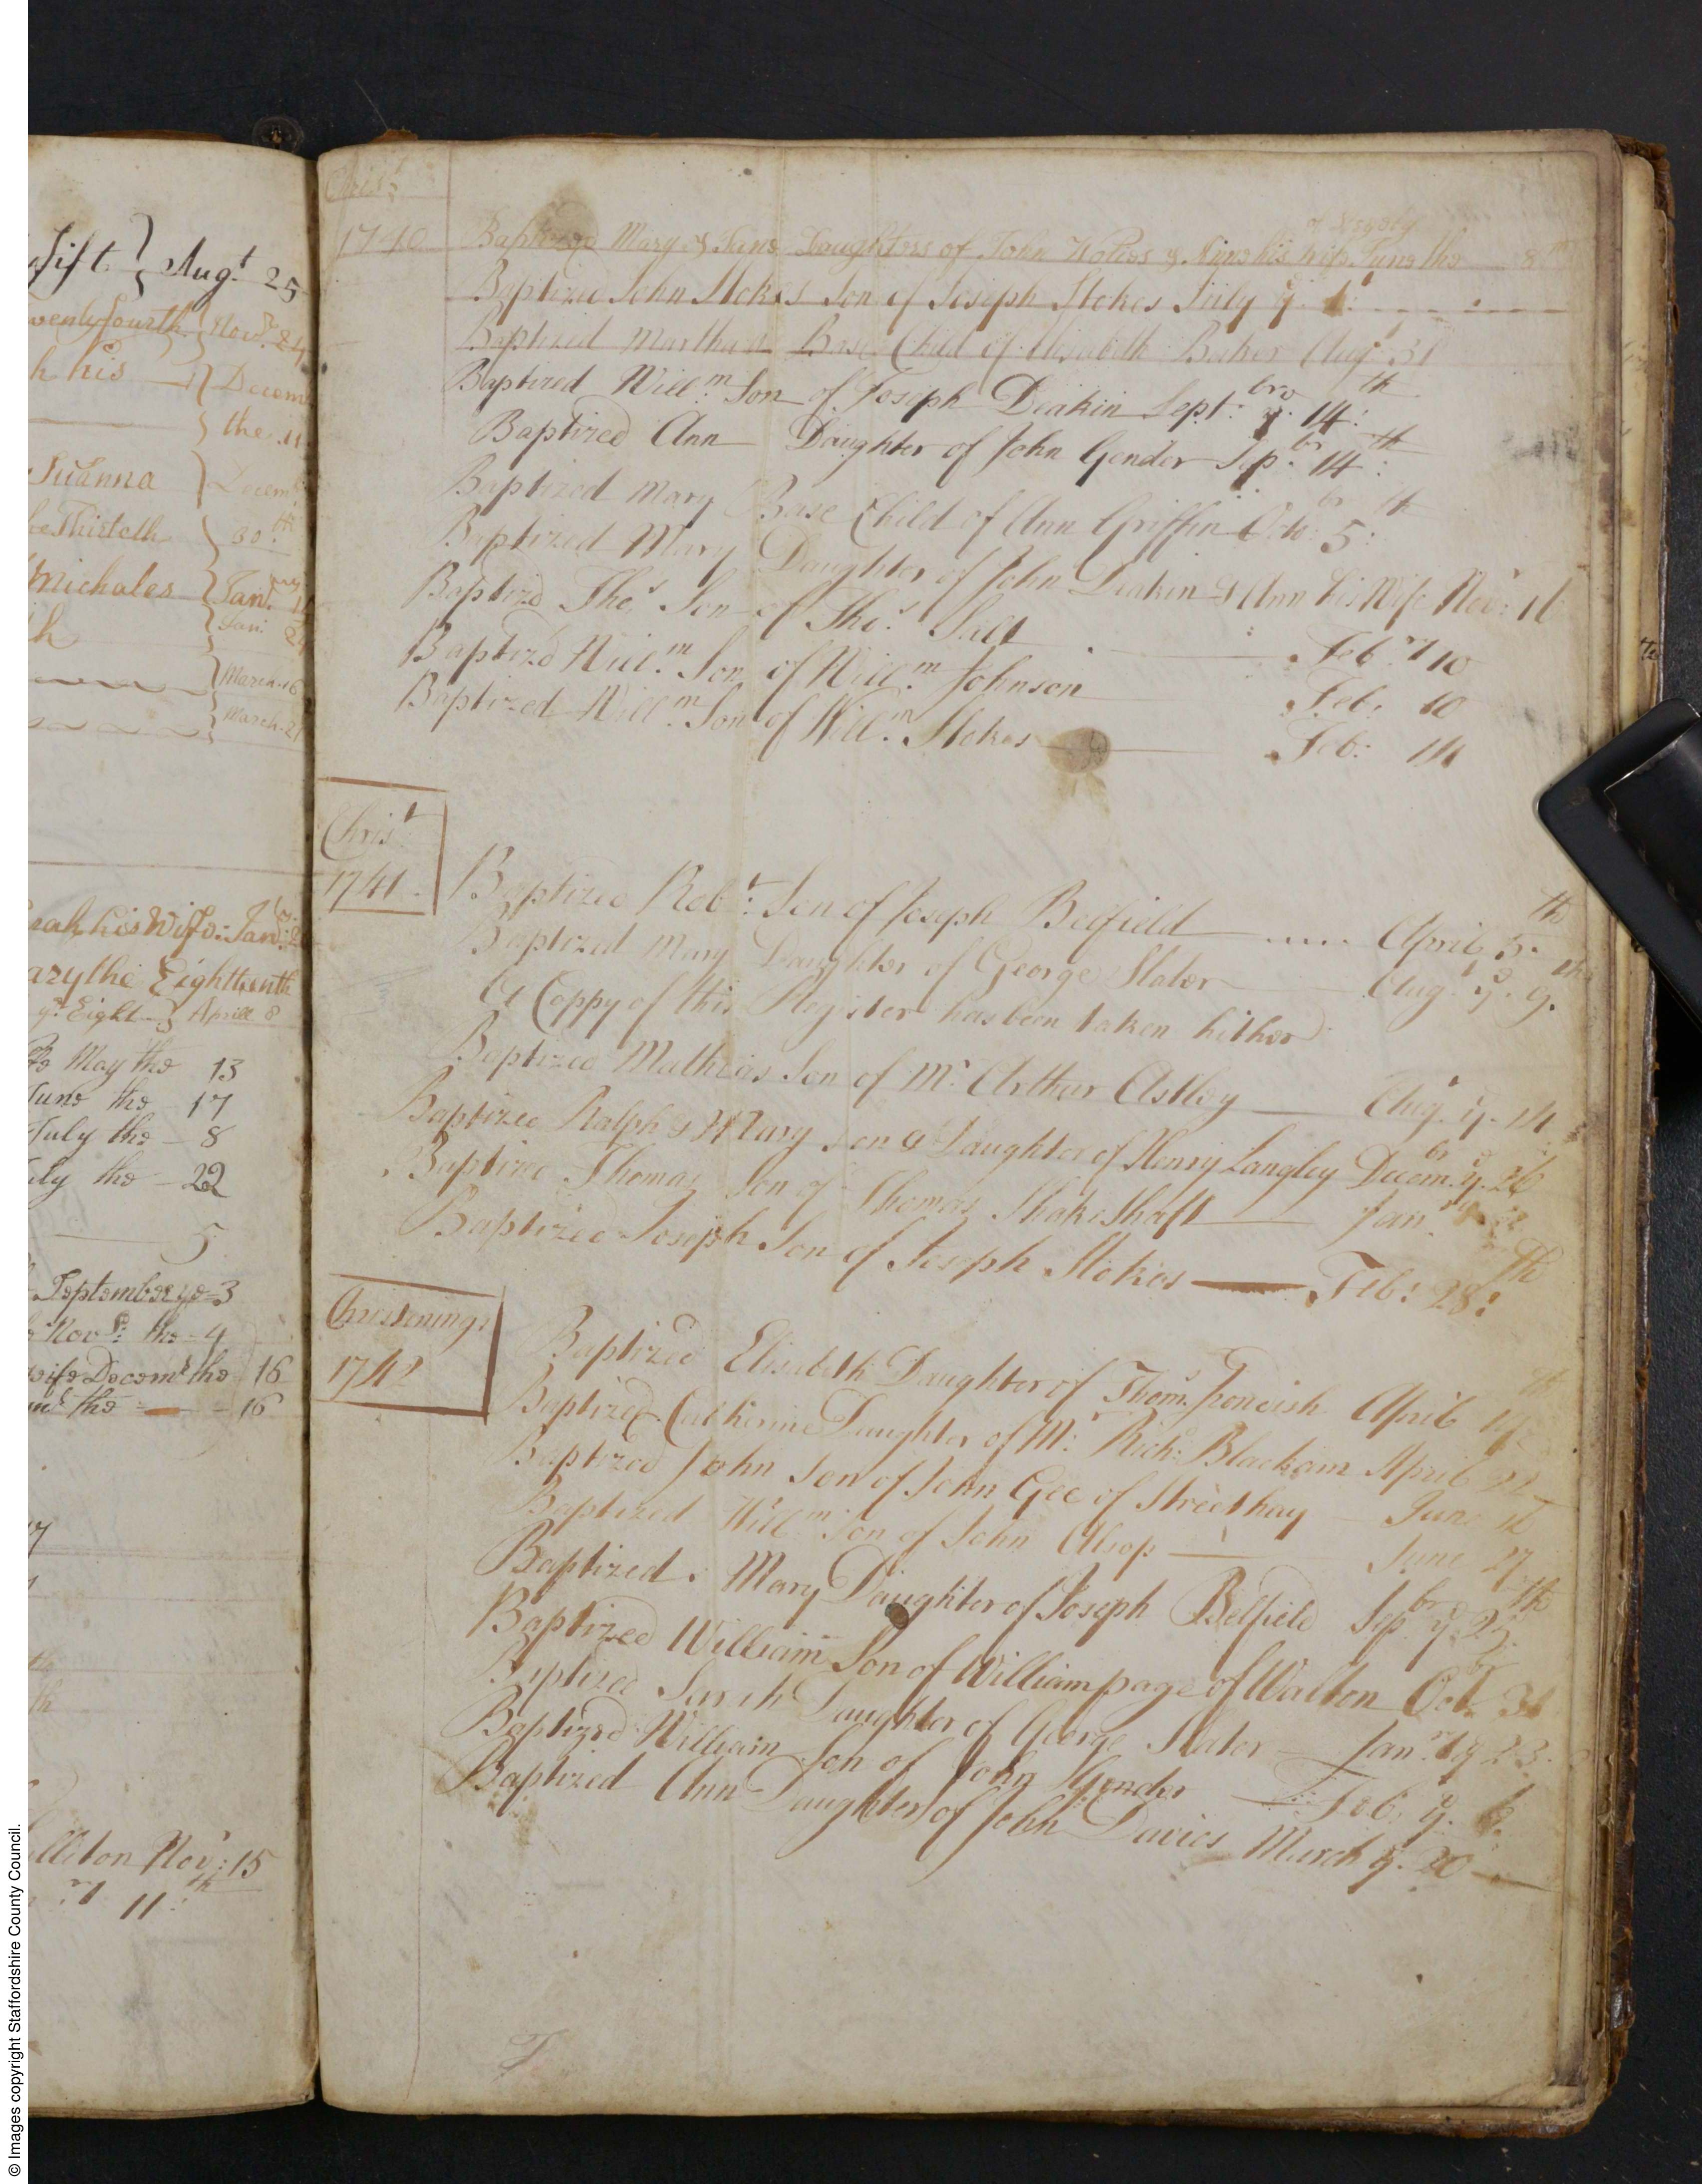 © Images copyright Staffordshire County Council.
Sift } Aug.t 25
Twenty fourth { Nov.r 24
h his } Decem
} the 11
Susanna } Decem.
the Thirteth { 30th
Michales { Jan.ry
Jan. 24
{ March 16
{ March 21
rah his Wife Jan:
ary the Eighteenth
ye Eight } Aprill 8
May the 13
June the 17
July the - 8
July the - 22
5
September ye = 3
Nov.r the - 4
wife Decem.r the 16
the - 16
Nov.r: 15
11:th
Christ
1740
Baptized Mary & Jane Daughters of John & Anne his wife June the 8th
Baptized John Stokes Son of Joseph Stokes July ye 1
Baptized Martha a Base Child of Elisabeth Baker Aug 31
Baptized Will:m Son of Joseph Deakin Sept:bre ye 14:th
Baptized Ann Daughter of John Gender Sep:br 14:th
Baptized Mary Base Child of Ann Griffin Octo:br 5:th
Baptized Mary Daughter of John Deakin & Ann his Wife Nov:r 16
Baptizd Tho:s Son of Tho:s Salt Feb:ry 10
Baptizd Will:m Son of Will:m Johnson Feb: 10
Baptized Will:m Son of Will:m Stokes Feb: 14
Christ
1741
Baptized Rob:t Son of Joseph Belfield April 5:th
Baptized Mary Daughter of George Slater Aug:t ye 9th
A Coppy of this Register has been taken hither
Baptized Mathias Son of Mr Arthur Astley Aug:t ye 14
Baptized Ralph & Mary Son & Daughter of Henry Langley Decem:br ye 26
Baptized Thomas Son of Thomas Shakeshaft Jan:ry
Baptized Joseph Son of Joseph Stokes Feb: 28:th
Christenings
1742
Baptized Elisabeth Daughter of Thom:s April
Baptized Catherine Daughter of Mr Rich:d Blackam April
Baptized John Son of John Gee of Streethay June 16
Baptized Will:m Son of John Alsop June 27
Baptized Mary Daughter of Joseph Belfield Sep:br ye 25th
Baptized William Son of William page of Walton Oct:br 31
Baptized Sarah Daughter of George Slater Jan:ry ye 23
Baptized William Son of John Gender Feb: ye 6
Baptized Ann Daughter of John Davies March ye 20